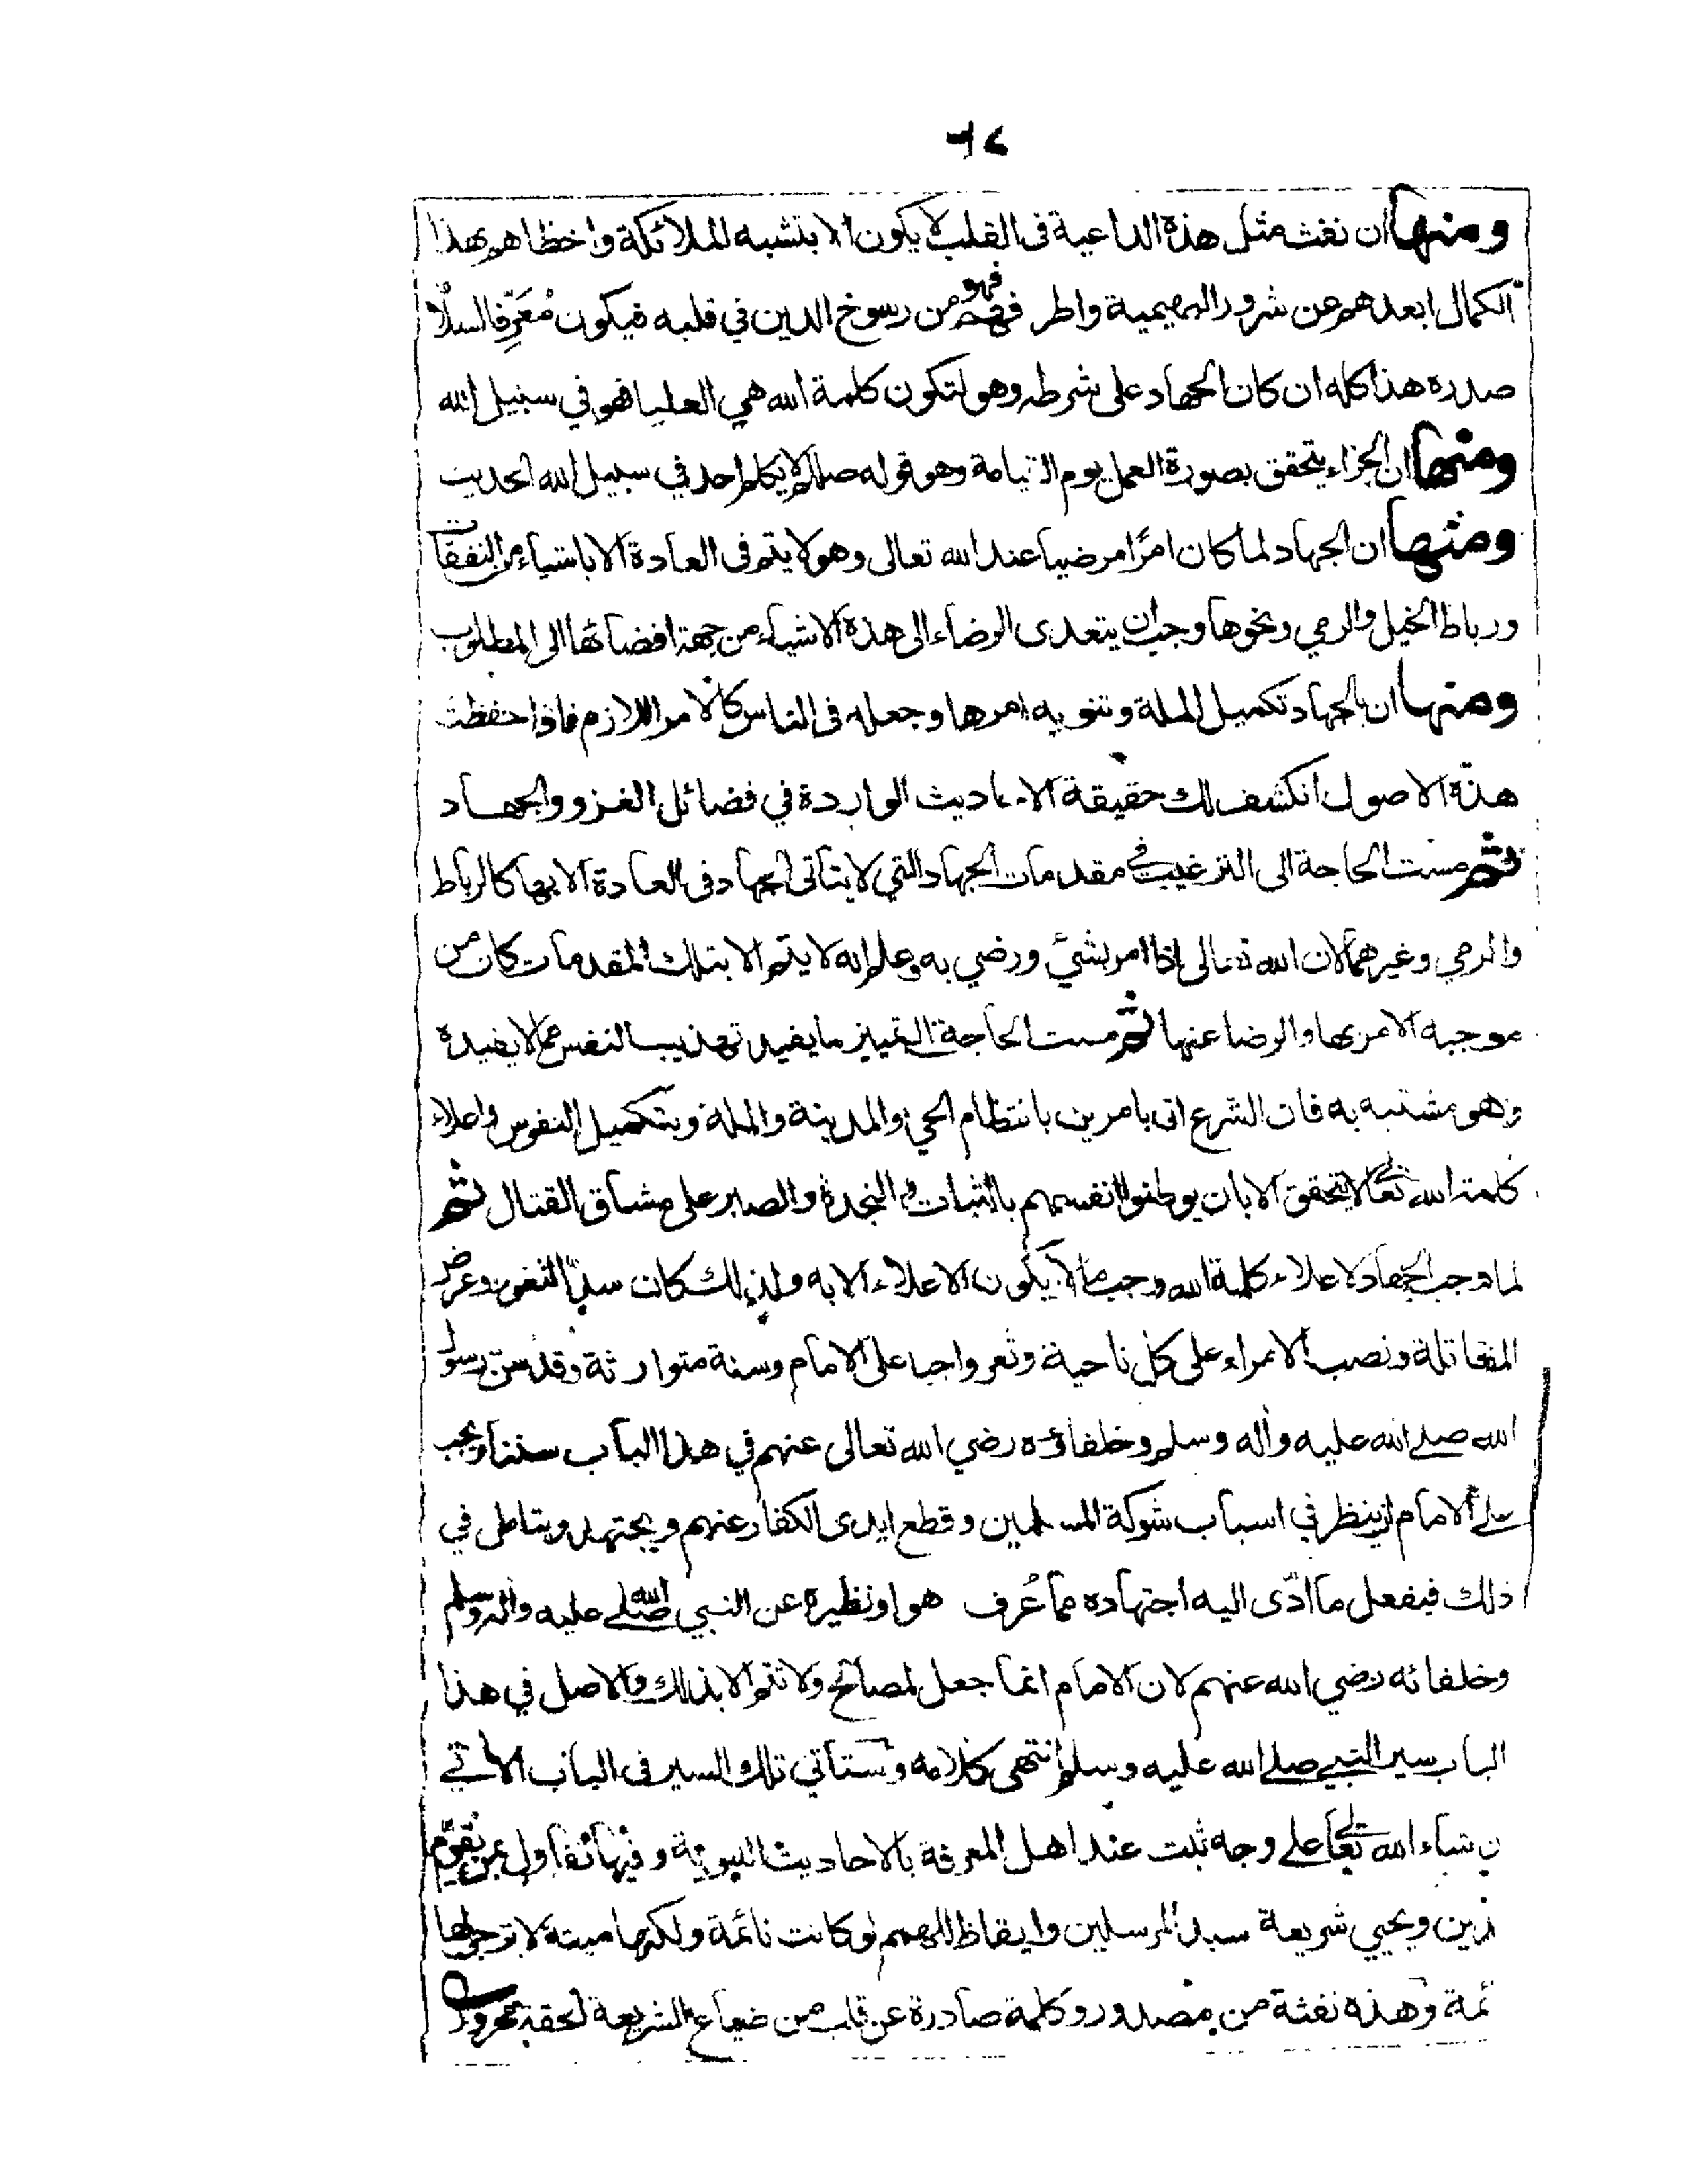 ٦٤
ومنها ان نفث مثل هذه الداعية فى القلب لا يكون الا بتشبه للملائكة واحظاهم بهذا
الكمال ابعدهم عن شرور البهيمية واطر فهم فهو من رسوخ الدين في قلبه فيكون مُعَرِّفا لسلا
صدره هذا كله ان كان الجهاد على شرطه وهو لتكون كلمة الله هي العليا فهو في سبيل الله
ومنها ان الجزاء يتحقق بصورة العمل يوم القيامة وهو قوله صللم لا يكلم احد في سبيل الله الحديث
ومنها ان الجهاد لما كان امرًا مرضيا عند الله تعالى وهو لا يتم فى العادة الا باشياء من النفقات
ورباط الخيل والرمي ونحوها وجب ان يتعدى الرضاء الى هذه الاشياء من جهة افضائها الى المطلوب
ومنها ان بالجهاد تكميل الملة وتنويه امرها وجعله فى الناس كالامر اللازم فاذا حفظت
هذه الاصول انكشف لك حقيقة الاحاديث الواردة في فضائل الغزو والجهاد
ثم مست الحاجة الى الترغيب في مقدمات الجهاد التي لا يتأتى الجهاد فى العادة الا بها كالرباط
والرمي وغيرهما لان الله تعالى اذا امر بشئ ورضي به وعلم انه لا يتم الا بتلك المقدمات كان من
موجبه الامر بها والرضا عنها ثم مست الحاجة الى تمييز ما يفيد تهذيب النفس مما لا يفيده
وهو مشتبه به فان الشرع اتى بامرين بانتظام الحي والمدينة والملة وبتكميل النفوس واعلاء
كلمة الله تعالى لا يتحقق الا بان يوطنوا انفسهم بالثبات و النجدة والصبر على مشاق القتال ثم
لما وجب الجهاد لاعلاء كلمة الله وجب ما لا يكون الاعلاء الا به ولذلك كان سدّ الثغور وعرض
المقاتلة ونصب الامراء على كل ناحية وثغر واجبا على الامام وسنة متوارثة وقد سن رسول
الله صلے الله عليه واٰله وسلم وخلفاؤه رضي الله تعالى عنهم في هذا الباب سننا ويجب
على الامام ان ينظر في اسباب شوكة المسلمين وقطع ايدى الكفار عنهم ويجتهد ويتامل في
ذلك فيفعل ما ادّى اليه اجتهاده مما عُرف هو او نظيره عن النبي صلے الله عليه واٰله وسلم
وخلفائه رضي الله عنهم لان الامام انما جعل لمصالح ولا تتم الا بذلك والاصل في هذا
الباب سير النبي صلے الله عليه وسلم انتهى كلامه وستأتي تلك السير فى الباب الآتي
ن شاء الله تعالى على وجه ثبت عند اهل المعرفة بالاحاديث النبوية وفيها تفاول بمن يقوّم
لدين ويحيي شريعة سيد المرسلين وايقاظ للهمم لو كانت نائمة ولكنها ميتة لا ترجى لها
ئمة وهذه نفثة من مصدور وكلمة صادرة عن قلب من ضياع الشريعة الحقة محرور